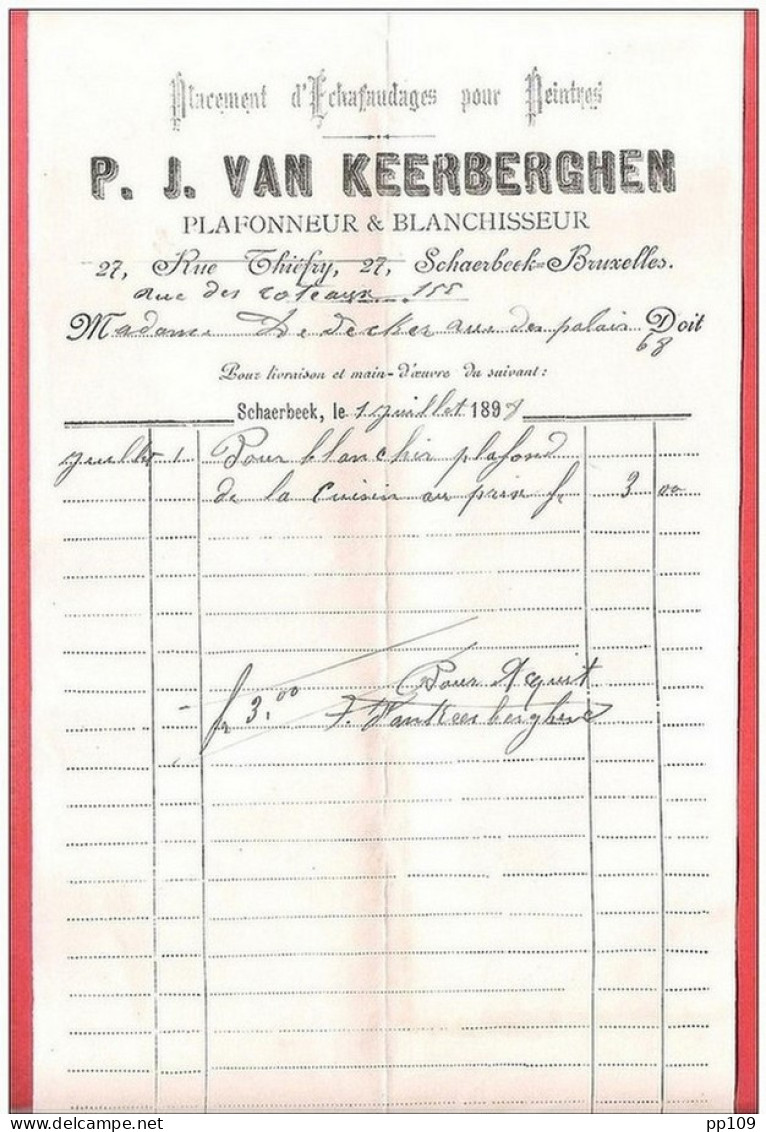 Placement d'Echafaudages pour Peintres
P. J. VAN KEERBERGHEN
PLAFONNEUR & BLANCHISSEUR
27, Rue Thiéfry, 27, Schaerbeek=Bruxelles.
Rue des Coteaux 155
Madame De Decker rue des palais Doit
68
Pour livraison et main-d'œuvre du suivant:
Schaerbeek, le 1 juillet 1898
juillet 1 Pour blanchir plafond
de la Cuisin au prix fr 3 00
Pour Aquit
fr 3.00 J. VanKeerberghen
pp109